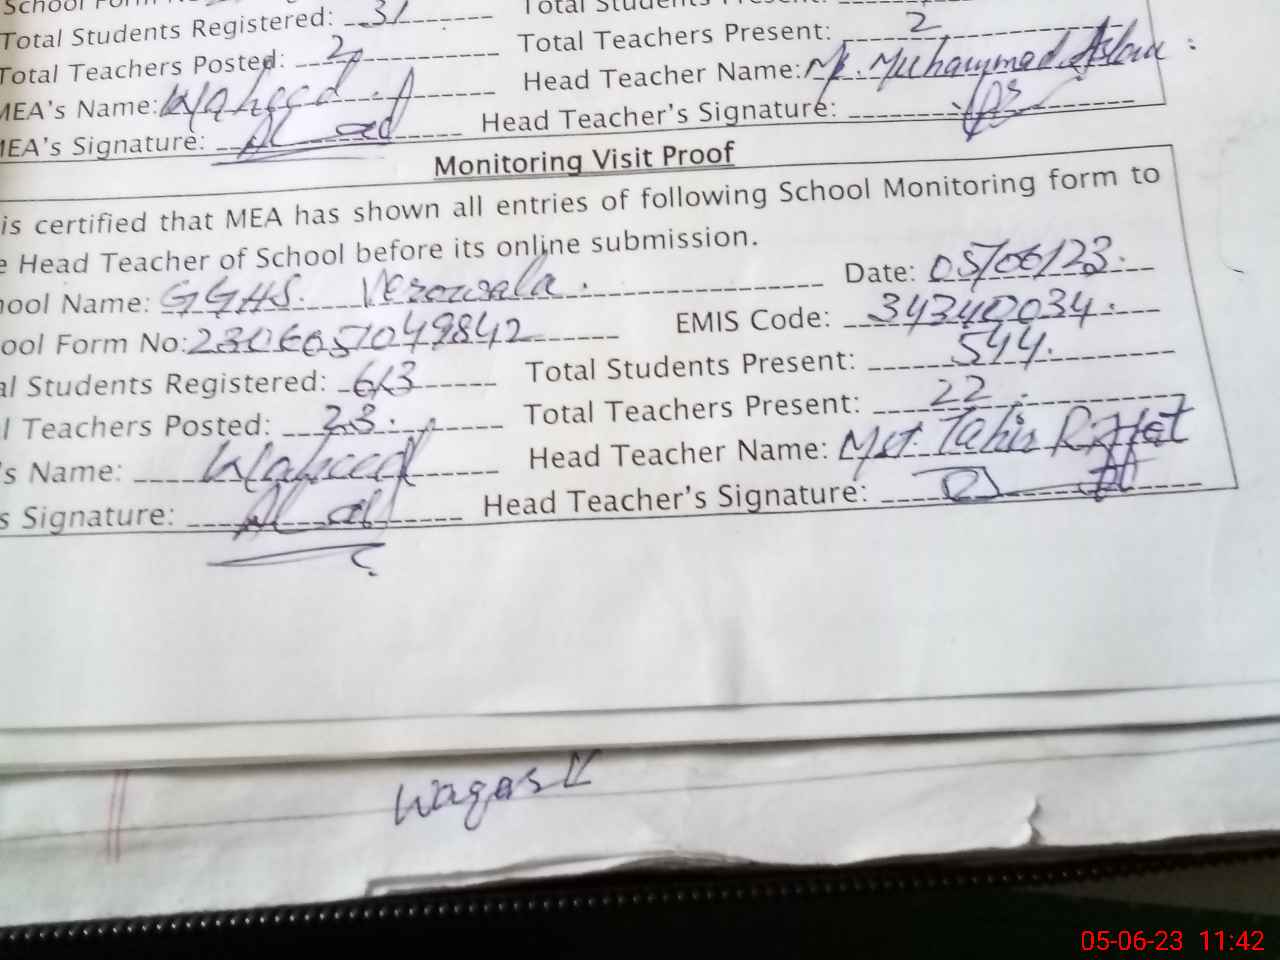 School Form
Total Students Registered: 31 Total Students Present:
Total Teachers Posted: 2 Total Teachers Present: 2
MEA's Name: Waheed A Head Teacher Name: Mr. Muhammad Aslam
MEA's Signature: Head Teacher's Signature:
Monitoring Visit Proof
is certified that MEA has shown all entries of following School Monitoring form to
e Head Teacher of School before its online submission.
hool Name: GGHS. Verowala. Date: 05/06/23.
ool Form No: 2306057049842 EMIS Code: 34340034.
al Students Registered: 613 Total Students Present: 544.
l Teachers Posted: 23. Total Teachers Present: 22
's Name: Waheed A Head Teacher Name: Mst. Tahir Riffat
s Signature: Head Teacher's Signature:
Waqas
05-06-23 11:42